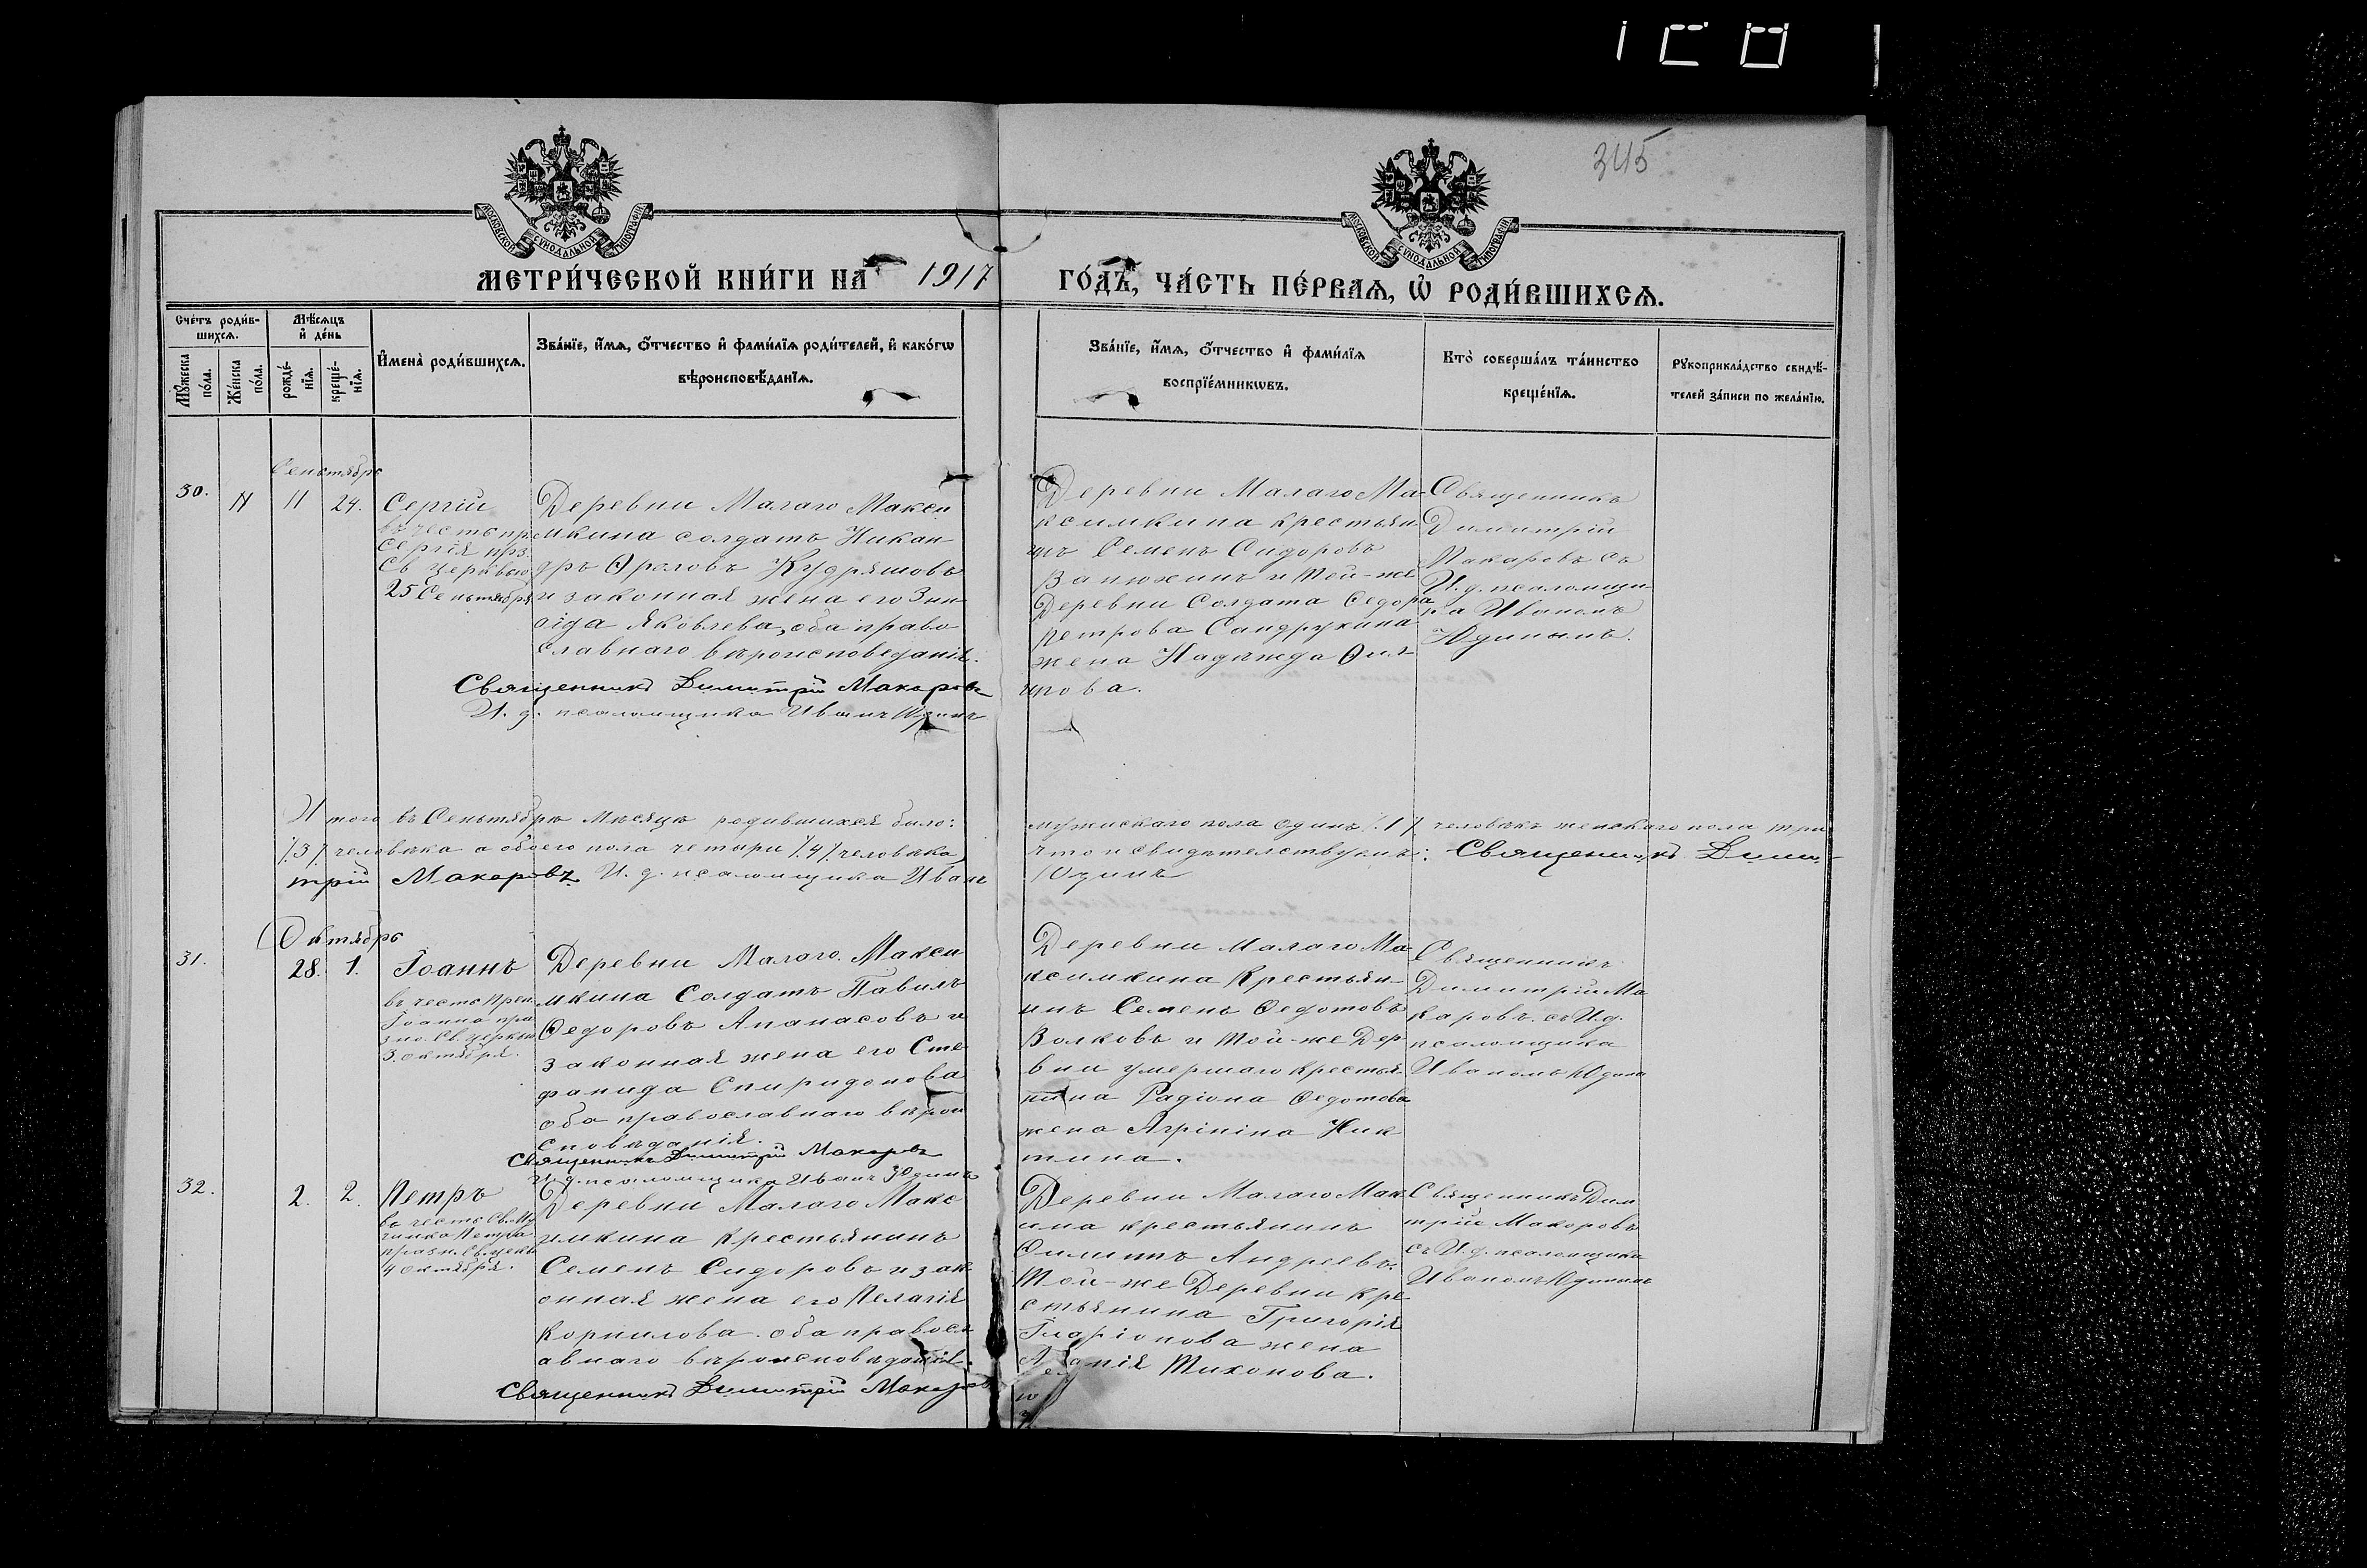 345
МОСКОВСКОЙ СѴНОДАЛЬНОЙ ТИПОГРАФІИ
МОСКОВСКОЙ СѴНОДАЛЬНОЙ ТИПОГРАФІИ
МЕТРИ́ЧЕСКОЙ КНИ́ГИ НА 1917 ГО́ДЪ, ЧА́СТЬ ПЕ́РВАѦ, Ѽ РОДИ́ВШИХСѦ.
Сче́тъ роди́в-
шихсѧ.
Мꙋ́жеска
по́ла.
Же́нска
по́ла.
Мѣ́сѧцъ
и҆ де́нь
рожде́-
нїѧ.
креще́-
нїѧ.
И҆мена̀ роди́вшихсѧ.
Зва́нїе, и҆́мѧ, ѻ҆́тчество и҆ фами́лїѧ роди́телей, и҆ како́гѡ
вѣроисповѣ́данїѧ.
Зва́нїе, и҆́мѧ, ѻ҆́тчество и҆ фами́лїѧ
воспрїе́мникѡвъ.
Кто̀ соверша́лъ та́инство
креще́нїѧ.
Рꙋкоприкла́дство свидѣ́-
телей за́писи по жела́нїю.
Сентябрь
30.
11
24.
Сергій
въ честь пр.
Сергія прз.
Св церквою
25 Сентября
Деревни Малаго Макси
мкина солдатъ Никан
дръ Фроловъ Кудряшовъ
и законная жена его Зин
аида Яковлева, оба право
славнаго вѣроисповеданія.
Священникъ Димитрій Макаровъ
И. д. псаломщика Иванъ Юдинъ
Деревни Малаго Ма-
ксимкина крестьян
инъ Семенъ Сидоровъ
Ванюхинъ и той-же
Деревни Солдата Федора
Петрова Сандрухина
жена Надежда Фил
ипова.
Священникъ
Димитрій
Макаровъ съ
И. д. псаломщи
ка Иваномъ
Юдинымъ.
Итого въ Сентябрѣ мѣсяцѣ родившихся было: мужискаго пола одинъ /.1/. человѣкъ женскаго пола три
/.3/. человѣка а обоего пола четыри /.4/. человѣка, что и свидѣтелствуемъ: Священникъ Дими-
трій Макаровъ И. д. псаломщика Иванъ Юдинъ
Октябрь
31.
28.
1.
Іоаннъ
въ честь Преп
Іоанна пра
зно. Св. церквью
3. октября.
Деревни Малаго Макси
мкина Солдатъ Павилъ
Федоровъ Апанасовъ и
законная жена его Сте
фанида Спиридонова
оба православнаго вѣрои
сповѣданія.
Священникъ Димитрій Макаровъ
И. д. псаломщика Иванъ Юдинъ
Деревни Малаго Ма
ксимкина Крестьян-
инъ Семенъ Федотовъ
Волковъ и той-же Дер
вни умершаго крестья
нина Радіона Федотова
жена Агріпіна Ник
тина.
Священникъ
Димитрій Ма
каровъ. съ И.д.
псаломщика
Иваномъ Юдина
32.
2.
2.
Петръ
въ честь Св. Му
ченика Петра
празн. Св. церкв
4 октября.
Деревни Малаго Макс
имкина Крестьянинъ
Семенъ Сидоровъ и зак
онная жена его Пелагія
Корнилова. оба правосл
авнаго вѣроисповѣданія.
Священникъ Димитрій Макаровъ
Деревни Малаго Мак
ина крестьянинъ
Филиппъ Андреевъ.
Той-же Деревни кре
стьянина Григорія
Іларіонова жена
Тихонова.
Священникъ Дим
трій Макаровъ
съ И. д. псаломщика
Иваномъ Юдинымъ